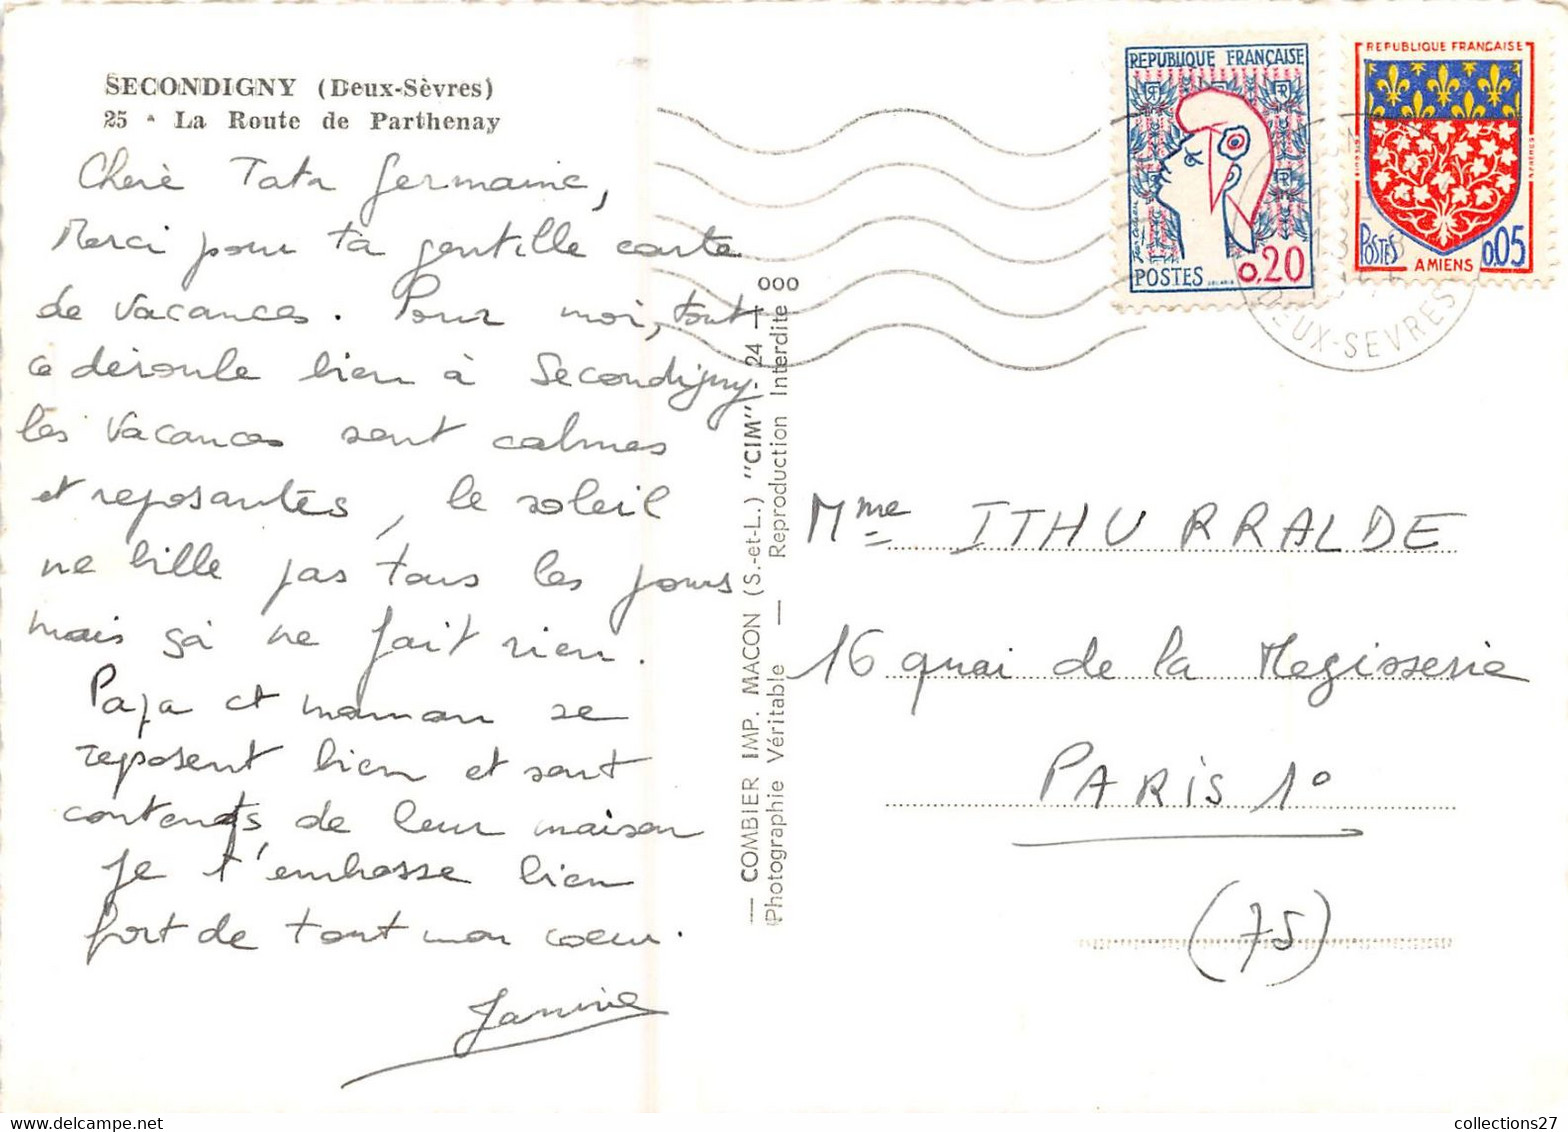 SECONDIGNY (Deux-Sèvres)
25 - La Route de Parthenay
Chère Tata Germaine,
Merci pour ta gentille carte
de vacances. Pour moi, tout
ce déroule bien à Secondigny
les vacances sont calmes
et reposantes, le soleil
ne bille pas tous les jours
mais çà ne fait rien.
Papa et maman se
reposent bien et sont
contents de leur maison
Je t'embrasse bien
fort de tout mon coeur.
Janine
— COMBIER IMP. MACON (S.-et-L.) "CIM" - 24 -
(Photographie Véritable — Reproduction Interdite
000
REPUBLIQUE FRANÇAISE
POSTES
0.20
REPUBLIQUE FRANÇAISE
POSTES
0.05
AMIENS
DEUX-SEVRES
Mme ITHURRALDE
16 quai de la Megisserie
PARIS 1°
(75)
collections27